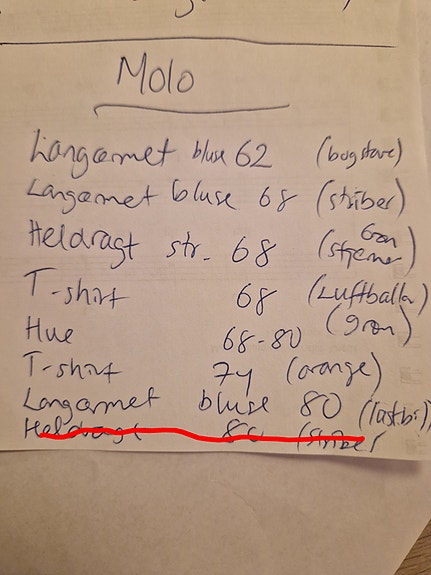 Molo
Langærmet bluse 62 (bogstave)
Langærmet bluse 68 (striber)
Heldragt str. 68 (Grøn stjerner)
T-shirt 68 (Luftballo)
Hue 68-80 (grøn)
T-shirt 74 (orange)
Langærmet bluse 80 (lastbil)
Heldragt 80 (striber